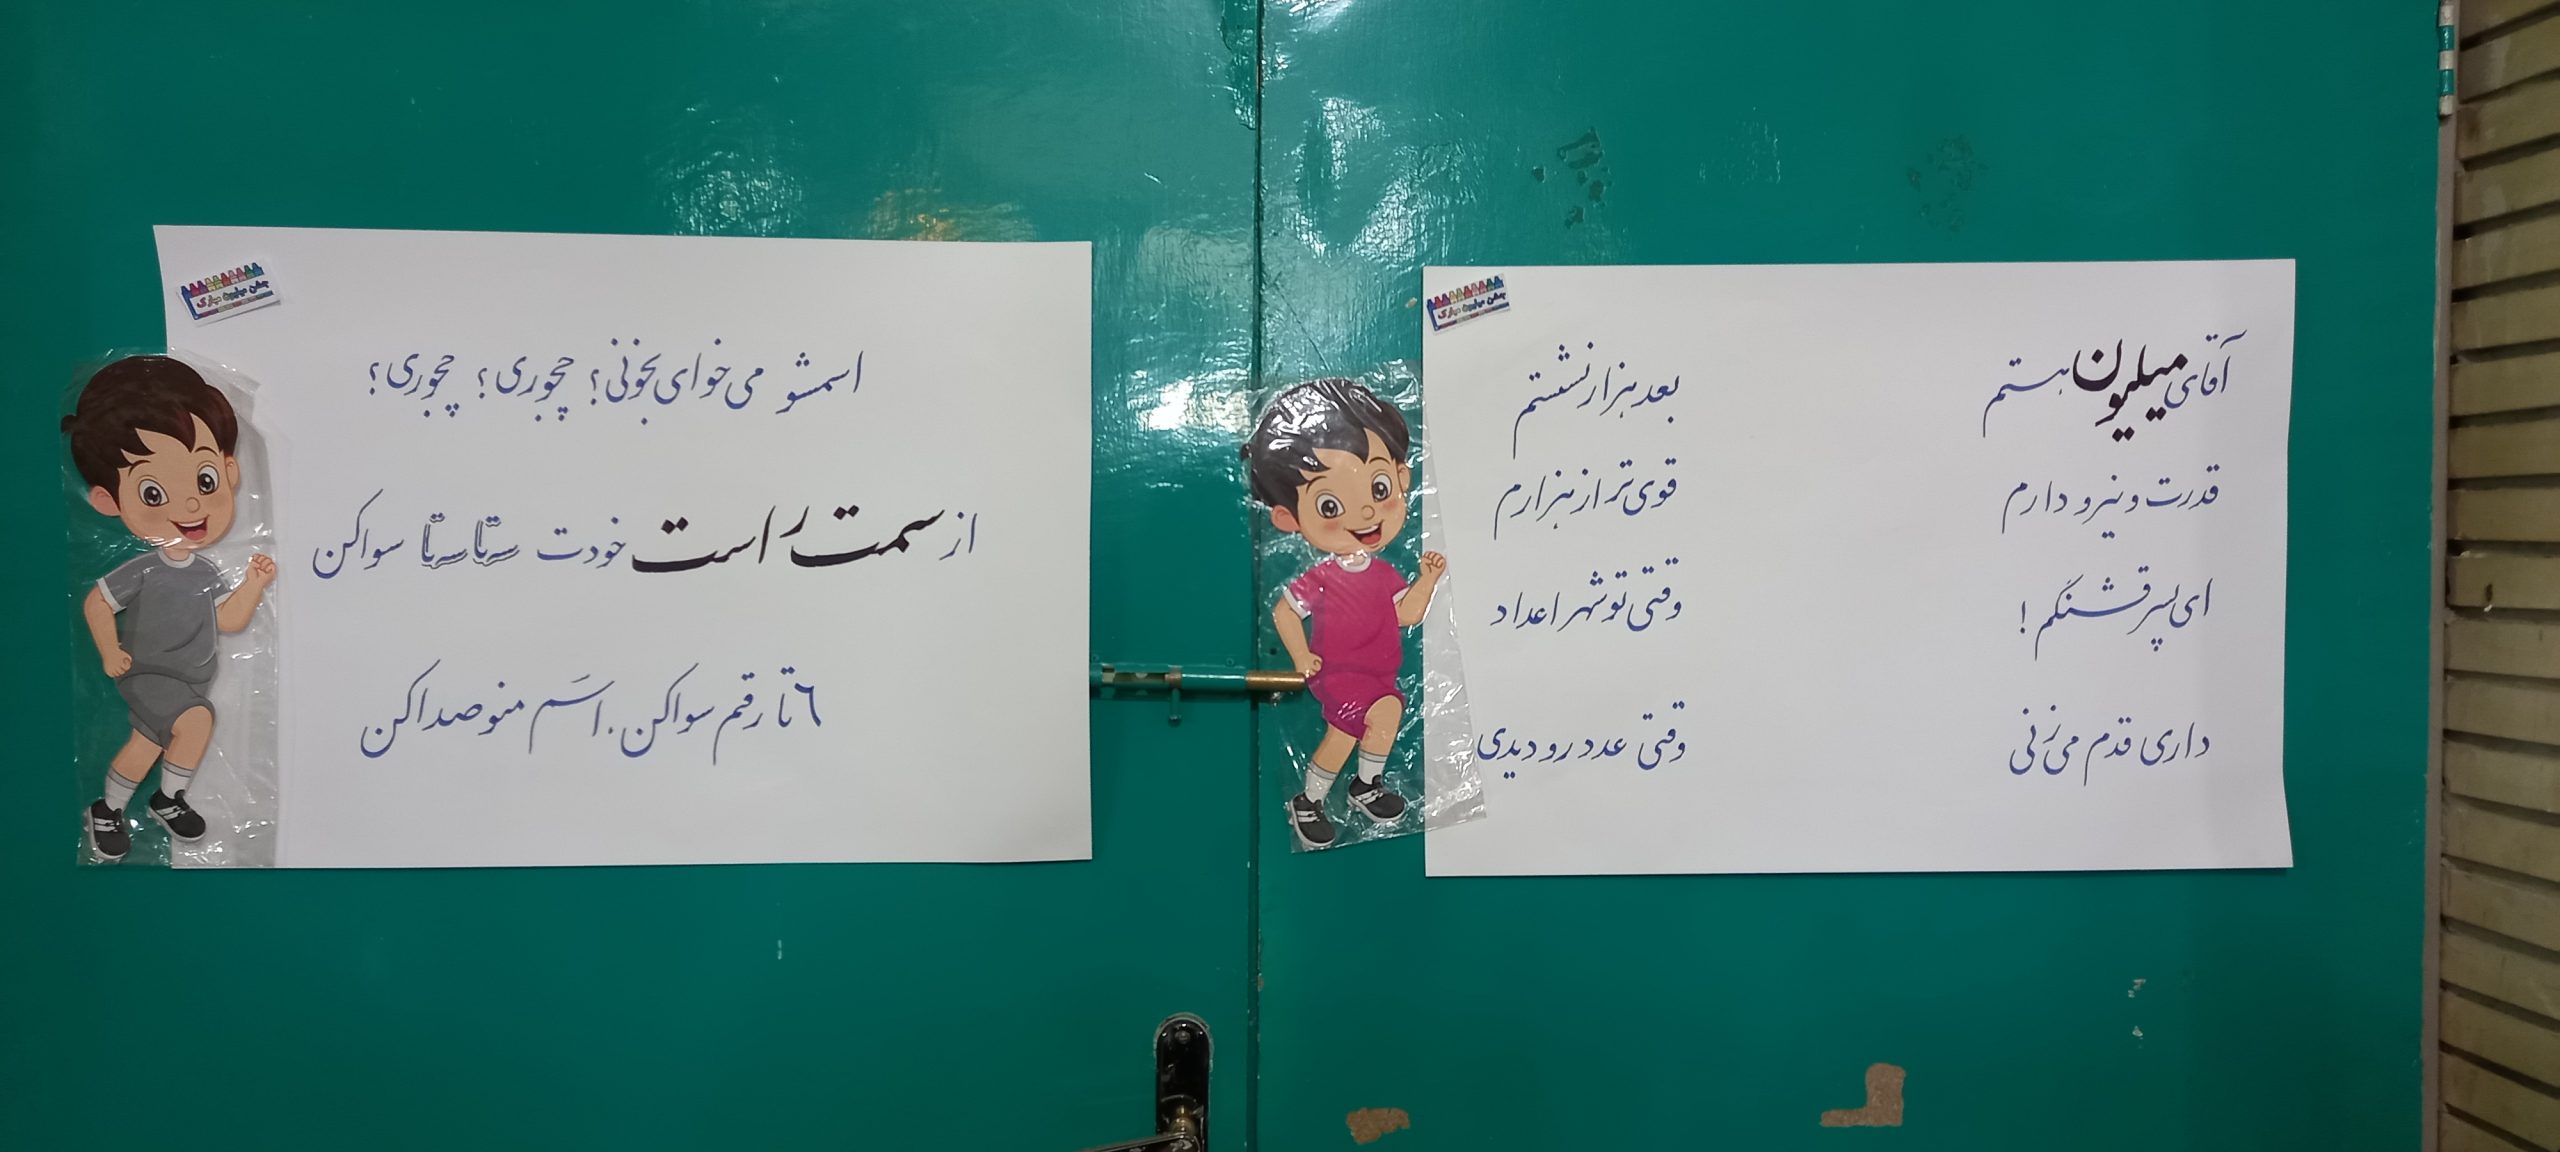 جشن میلیون مبارک
آقای میلیون هستم بعد هزار نشستم
قدرت و نیرو دارم قوی‌تر از هزارم
ای پسر قشنگم! وقتی تو شهر اعداد
داری قدم می‌زنی وقتی عدد رو دیدی
جشن میلیون مبارک
اسمشو می‌خوای بخونی؟ چجوری؟ چجوری؟
از سمت راست خودت سه‌تا سه‌تا سوا کن
۶ تا رقم سوا کن. اسَم منو صدا کن